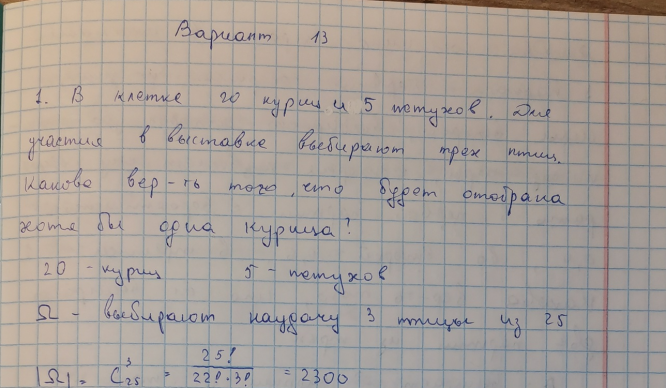 Вариант 13
1. В клетке 20 куриц и 5 петухов. Для
участия в выставке выбирают трех птиц.
Какова вер-ть того, что будет отобрана
хотя бы одна курица?
20 - куриц 5 - петухов
Ω - выбирают наудачу 3 птицы из 25
|Ω| = C³₂₅ = 25!/(22!·3!) = 2300